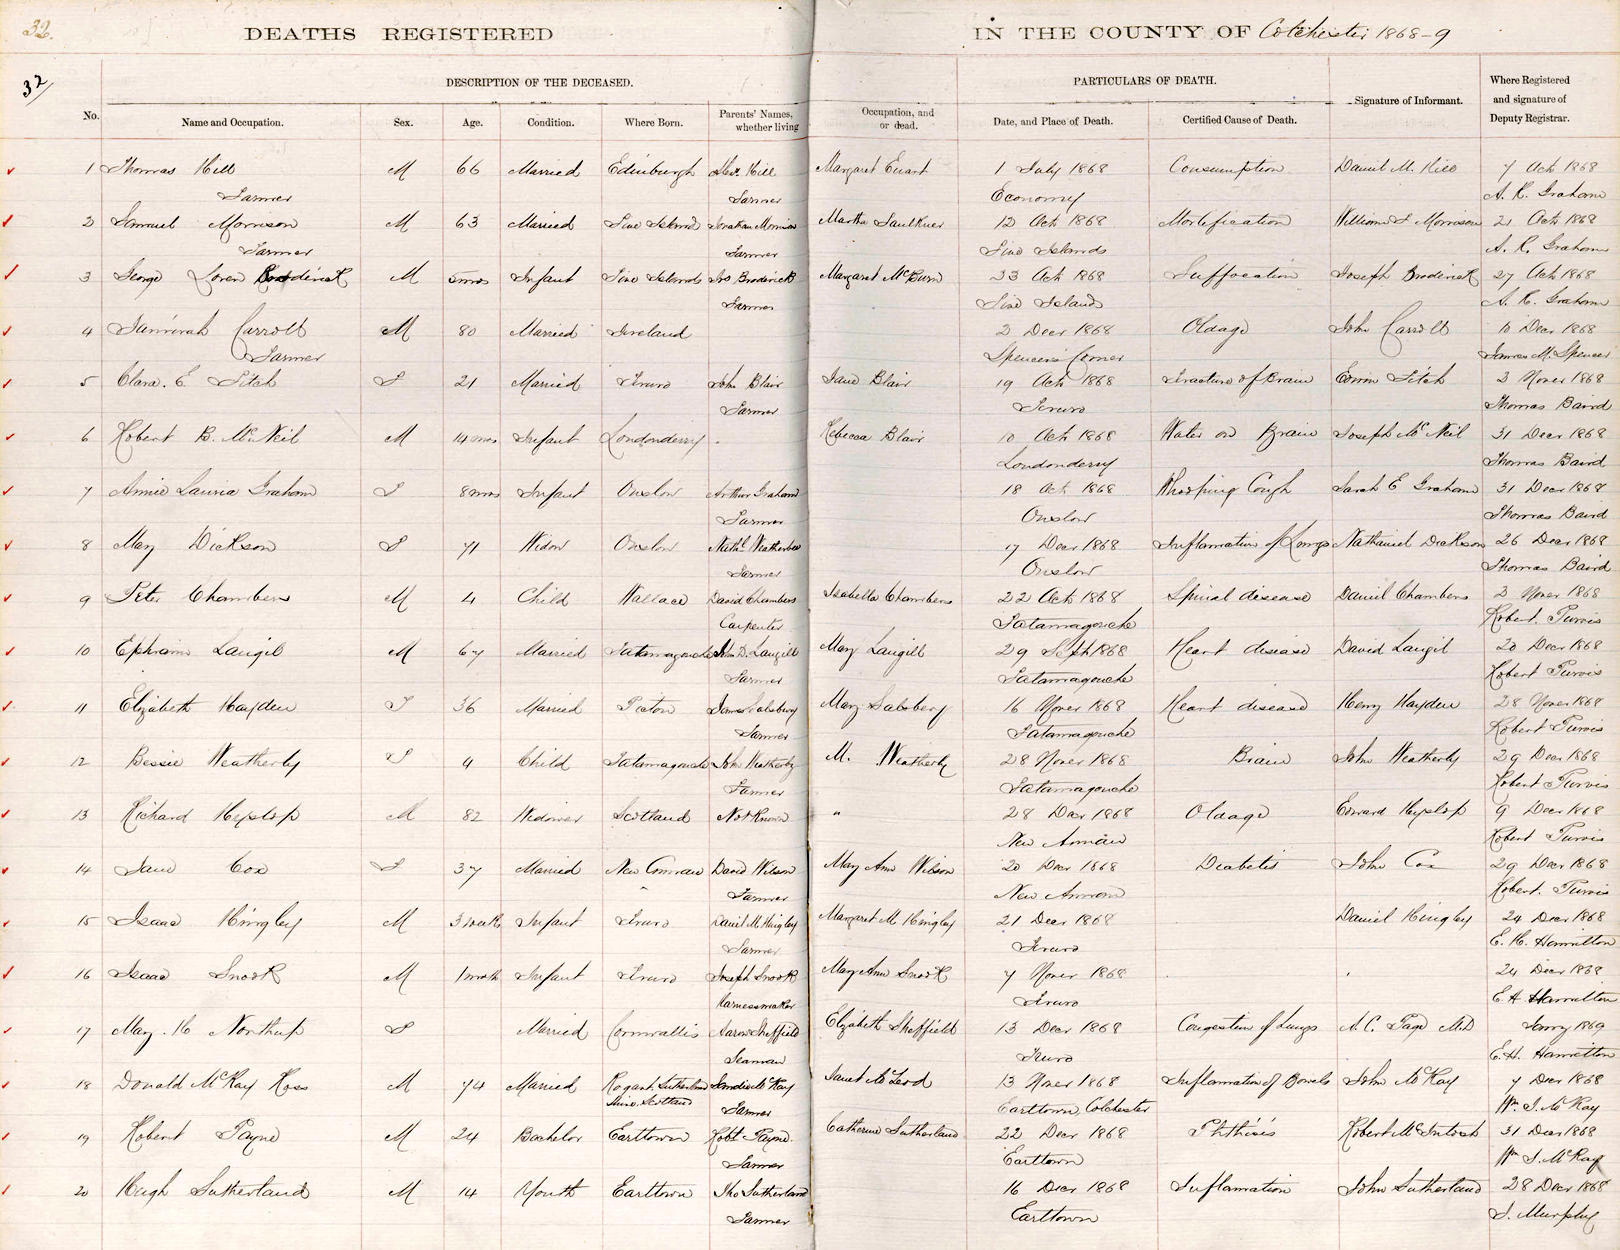 32.
DEATHS REGISTERED IN THE COUNTY OF Colchester 1868-9
32/
DESCRIPTION OF THE DECEASED. PARTICULARS OF DEATH. Where Registered and signature of Deputy Registrar.
No. Name and Occupation. Sex. Age. Condition. Where Born. Parents' Names, whether living Occupation, and or dead. Date, and Place of Death. Certified Cause of Death. Signature of Informant.
1 Thomas Hill M 66 Married Edinburgh Alexr Hill Margaret Ewart 1 July 1868 Consumption Daniel M. Hill 7 Oct 1868
Farmer Farmer Economy A. K. Graham
2 Samuel Morrison M 63 Married Five Islands Jonathan Morrison Martha Faulkner 12 Oct 1868 Mortefication William F Morrison 21 Oct 1868
Farmer Farmer Five Islands A. K. Graham
3 George Loren Broderick M 5 mos Infant Five Islands Jno Broderick Margaret McBurn 23 Oct 1868 Suffocation Joseph Broderick 27 Oct 1868
Farmer Five Islands A. K. Graham
4 Carroll M 80 Married Ireland 2 Decr 1868 Oldage John Carroll 10 Decr 1868
Farmer Spencer's Corner James M. Spencer
5 Clara. E Fitch F 21 Married Truro John Blair Jane Blair 19 Oct 1868 Fracture of Brain Edwin Fitch 3 Novr 1868
Farmer Truro Thomas Baird
6 Robert B. McNeil M 14 mos Infant Londonderry Rebecca Blair 10 Oct 1868 Water on Brain Joseph McNeil 31 Decr 1868
Londonderry Thomas Baird
7 Annie Lauria Graham F 8 mos Infant Onslow Arthur Graham 18 Oct 1868 Whooping Cough Sarah E Graham 31 Decr 1868
Farmer Onslow Thomas Baird
8 May Dickson F 71 Widow Onslow Nathl Weatherbee 17 Decr 1868 Inflamation of Lungs Nathaniel Dickson 26 Decr 1868
Farmer Onslow Thomas Baird
9 Peter Chambers M 4 Child Wallace David Chambers Isabella Chambers 22 Oct 1868 Spinal disease Daniel Chambers 2 Novr 1868
Carpenter Tatamagouche Robert. Purvis
10 Ephraim Langil M 67 Married Tatamagouche John D. Langill Mary Langill 29 Sept 1868 Heart disease David Langil 20 Decr 1868
Farmer Tatamagouche Robert Purvis
11 Elizabeth Hayden F 36 Married Picton James Salsbery Mary Salsbery 16 Novr 1868 Heart disease Henry Hayden 28 Novr 1868
Farmer Tatamagouche Robert Purvis
12 Bessie Weatherby F 4 Child Tatamagouche John Weatherby M. Weatherby 28 Novr 1868 Brain John Weatherby 29 Decr 1868
Farmer Tatamagouche Robert Purvis
13 Richard Hyslop M 82 Widower Scotland Not Known " 28 Decr 1868 Oldage Edward Hyslop 9 Decr 1868
New Annan Robert Purvis
14 Jane Cox F 37 Married New David Wilson Mary Ann Wilson 20 Decr 1868 Diabetis John Cox 29 Decr 1868
Farmer New Annan Robert. Purvis
15 Isaac Kingley M 3 weeks Infant Truro Daniel M. Kingley Margaret M Kingley 21 Decr 1868 Daniel Kingley 24 Decr 1868
Farmer Truro E. H. Hamilton
16 Isaac Snook M 1 month Infant Truro Joseph Snook Mary Ann Snook 7 Novr 1868 24 Decr 1868
Harnessmaker Truro E. H Hamilton
17 May. H Northup F Married Cornwallis Aaron Sheffield Elizabeth Sheffield 13 Decr 1868 Congestion of Lungs A. C. Page MD Janry 1869
Seaman Truro E. H. Hamilton
18 Donald McKay Ross M 74 Married Rogart, Sutherland McKay Janet McLeod 13 Novr 1868 Inflamation of Bowels John McKay 7 Decr 1868
Shire. Scotland Farmer Earltown Colchester Wm. I. McKay
19 Robert Payne M 24 Bachelor Earltown Robt Payne Catherine Sutherland 22 Decr 1868 Phthisis Robert McIntosh 31 Decr 1868
Farmer Earltown Wm I. McKay
20 Hugh Sutherland M 14 Youth Earltown Jno Sutherland 16 Decr 1868 Inflamation John Sutherland 28 Decr 1868
Farmer Earltown Murphy